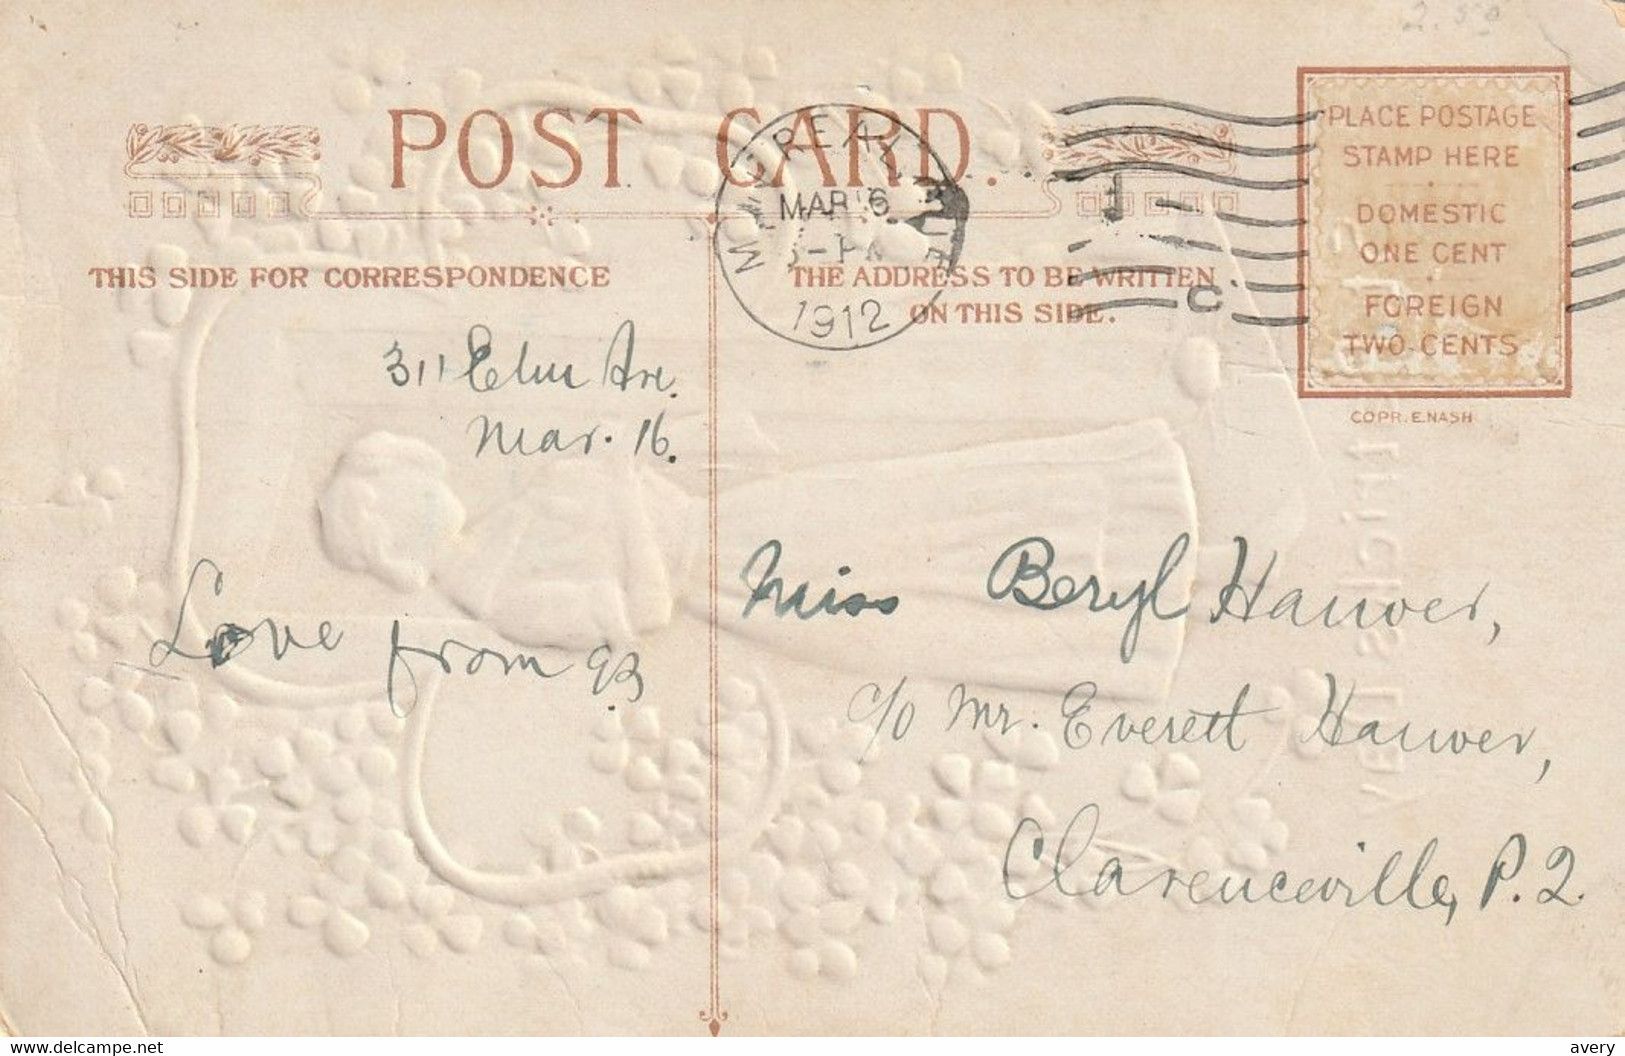 2.50
POST CARD.
MONTREAL, QUE
MAR 16
1912
C
PLACE POSTAGE
STAMP HERE
DOMESTIC
ONE CENT
FOREIGN
TWO CENTS
COPR. E. NASH
THIS SIDE FOR CORRESPONDENCE
THE ADDRESS TO BE WRITTEN
ON THIS SIDE.
311 Elm Ave.
Mar. 16.
Love from
Miss Beryl Hauver,
c/o Mr. Everett Hauver,
Clarenceville, P.Q.
delcampe.net
avery